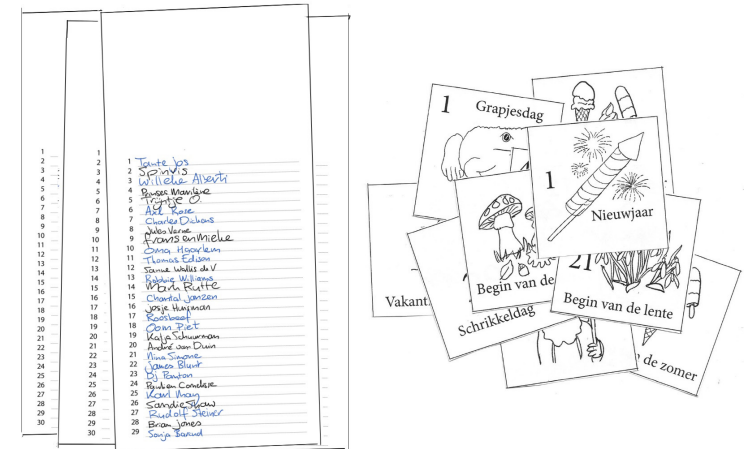 1
2
3
4
5
6
7
8
9
10
11
12
13
14
15
16
17
18
19
20
21
22
23
24
25
26
27
28
29
30
1
2
3
4
5
6
7
8
9
10
11
12
13
14
15
16
17
18
19
20
21
22
23
24
25
26
27
28
29
30
1 Tante Jos
2 Spinvis
3 Willeke Alberti
4 Prinses Marilène
5 Trijntje O.
6 Axl Rose
7 Charles Dickens
8 Jules Verne
9 frans en Mieke
10 Oma Haarlem
11 Thomas Edison
12 Sanne Wallis de V
13 Robbie Williams
14 Mark Rutte
15 Chantal Janzen
16 Josje Huisman
17 Roosbeef
18 Oom Piet
19 Katja Schuurman
20 André van Duin
21 Nina Simone
22 James Blunt
23 Dj
24 Paulien Cornelisse
25 Karl May
26 Sandie Shaw
27 Rudolf Steiner
28 Brian Jones
29 Sonja Barend
1 Grapjesdag
1
Nieuwjaar
Begin van de
21
Begin van de lente
Vakant
Schrikkeldag
de zomer